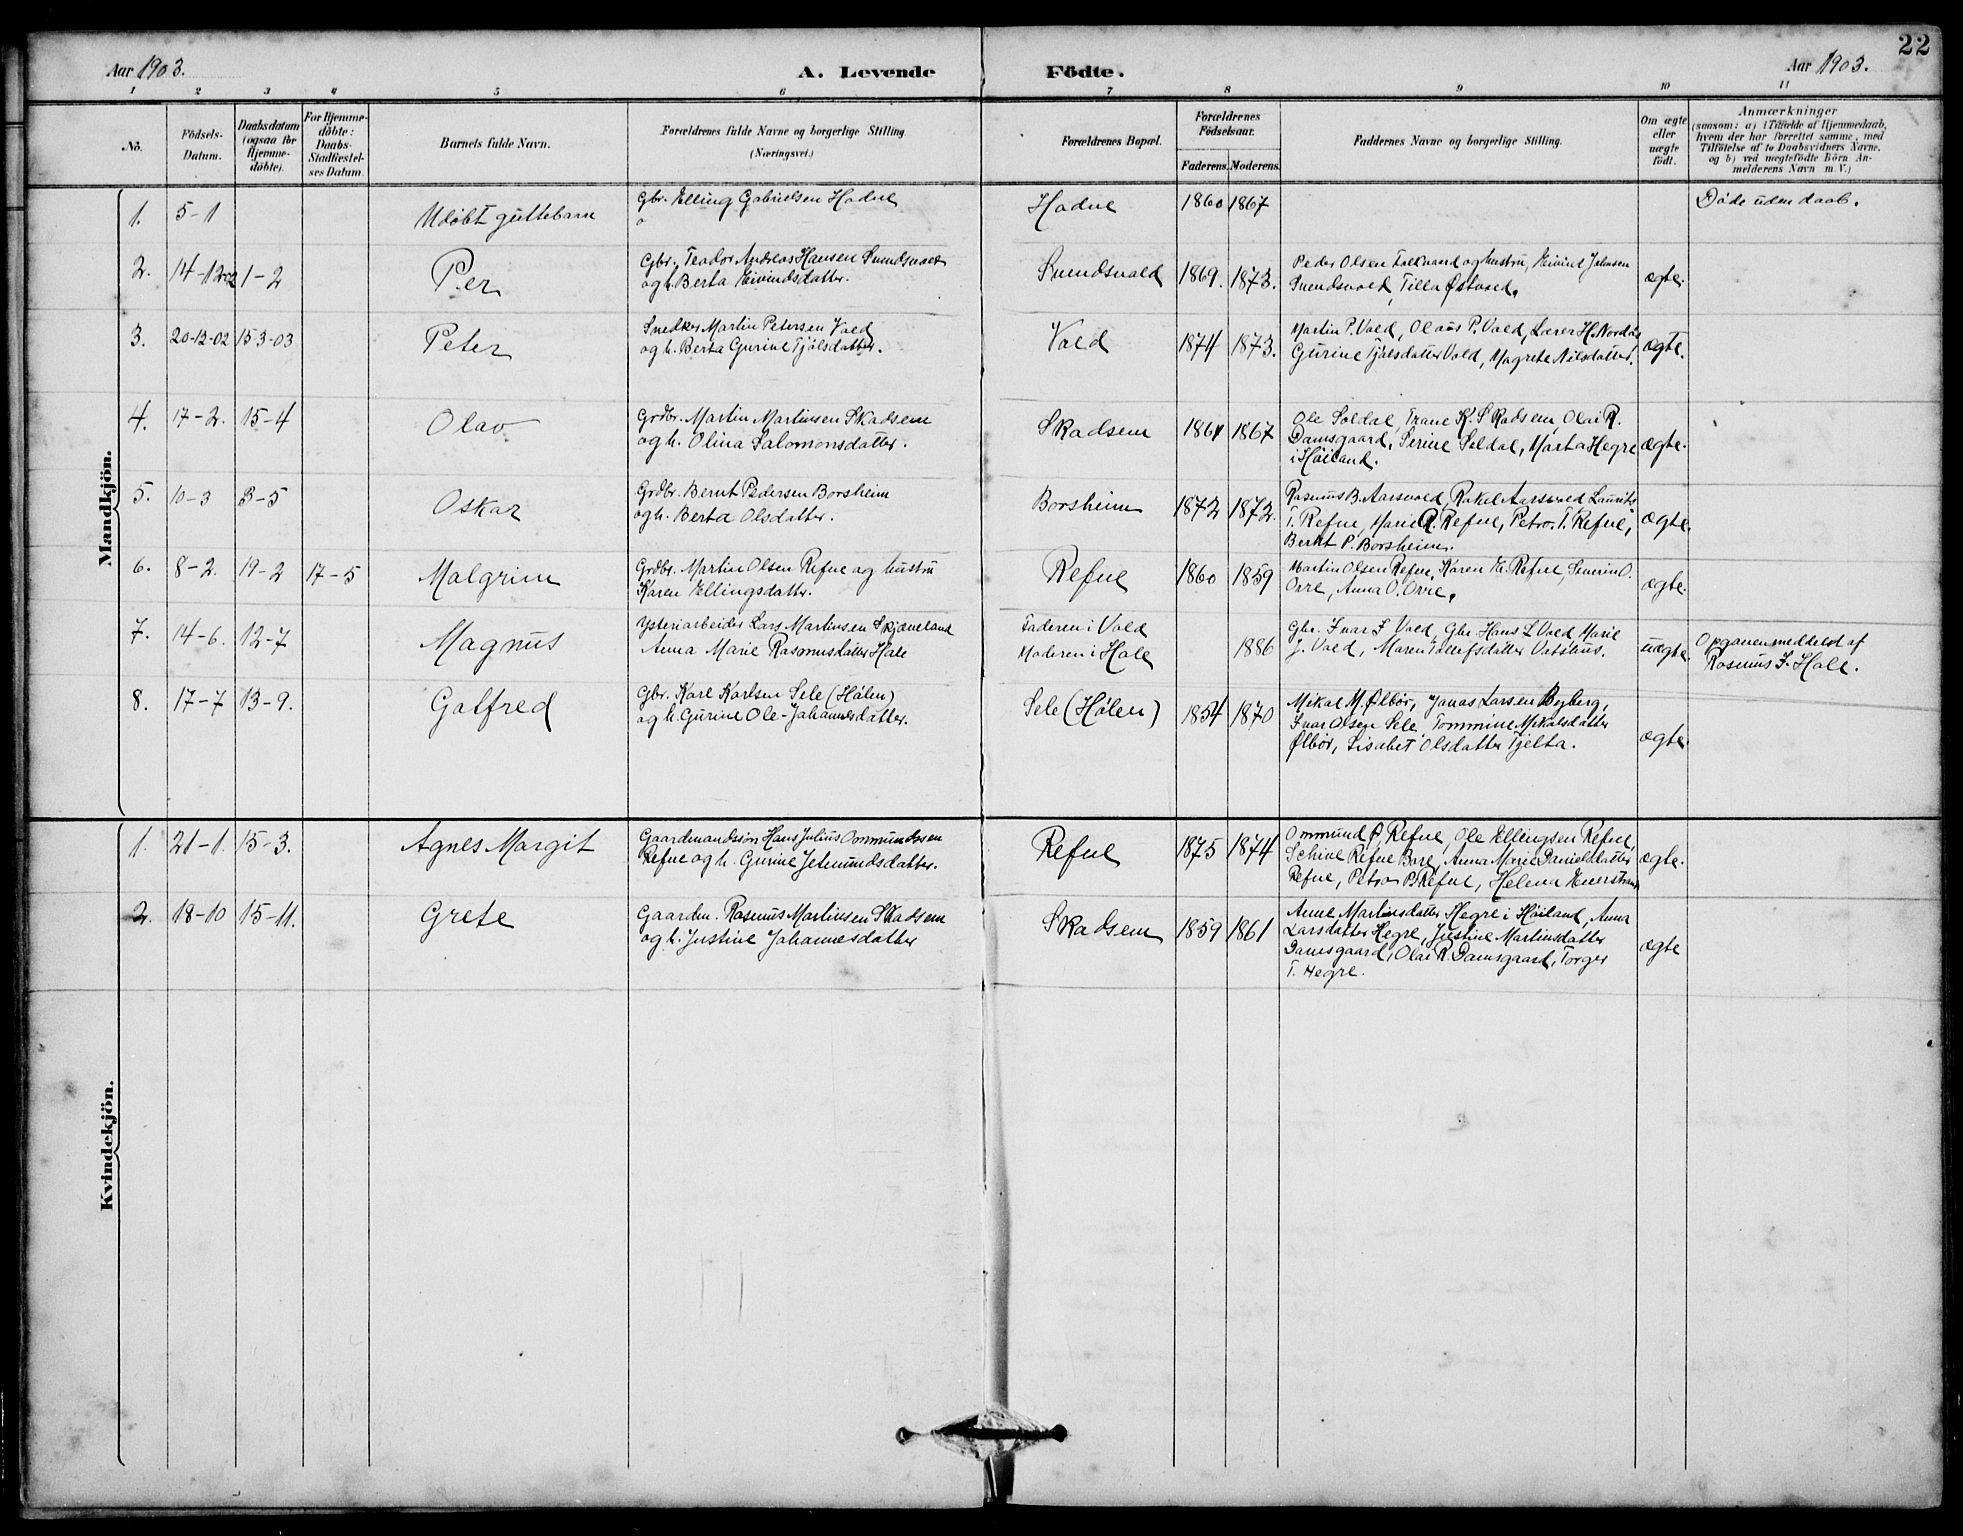 22
Aar 1903.
A. Levende Födte.
Aar 1903.
1 2 3 4 5 6 7 8 9 10 11
No.
Födsels-Datum.
Daabsdatum (ogsaa for Hjemme-döbte).
For Hjemme-döbte: Daabs-Stadfæstel-ses Datum.
Barnets fulde Navn.
Forældrenes fulde Navne og borgerlige Stilling.
(Næringsvei.)
Forældrenes Bopæl.
Forældrenes Födselsaar.
Faderens. Moderens.
Faddernes Navne og borgerlige Stilling.
Om ægte eller uægte födt.
Anmærkninger
(saasom: a) i Tilfælde af Hjemmedaab,
hvem der har forrettet samme, med
Tilföielse af to Daabsvidners Navne,
og b) ved uægtefödte Börn An-
melderens Navn m. V.)
Mandkjön.
1. 5-1 Udøbt guttebarn
Gbr. Elling Gabrielsen Hodne
o
Hodne 1860 1867
Døde uden daab.
2. 14-12 02 1-2 Per
Gbr. Teodor Andreas Hansen Svendsvold
og h. Berta Eivindsdatter.
Svendsvold 1869. 1873.
Peder Olsen Folkvord og hustru, Eivind Johnsen
Svendsvold, Tilla Østvold.
ægte.
3. 20-12-02 15 3-03 Peter
Snedker Martin Petersen Vold
og h. Berta Gurine Tjølsdatter.
Vold 1874 1873.
Martin P. Vold, Olaus P. Vold, Lærer H. Nordås
Gurine Tjølsdatter Vold, Magrete Nilsdatter.
ægte.
4. 17-2. 15-4 Olav
Grdbr. Martin Martinsen Skadsem
og h. Olina Salomonsdatter.
Skadsem 1861 1867
Ole Soldal, Trane K. Skadsem, Olai R.
Damsgaard, Serine Seldal, Marta Hegre
i Høiland.
ægte.
5. 10-3 3-5 Oskar
Grdbr. Bernt Pedersen Borsheim
og h. Berta Olsdatter.
Borsheim 1872 1872.
Rasmus B. Aarsvold, Rakel Aarsvold, Laurits
T. Refne, Marie R. Refne, Petra T. Refne,
Bernt P. Borsheim.
ægte.
6. 8-2. 19-2 17-5 Malgrim
Grdbr. Martin Olsen Refne og hustru
Karen Ellingsdatter.
Refne 1860 1859
Martin Olsen Refne, Karen E. Refne, Severin O.
Orre, Anna O. Orre.
ægte.
7. 14-6. 12-7 Magnus
Ysteriarbeider Lars Martinsen Skjæveland
Anna Marie Rasmusdatter Hole
Faderen i Vold
Moderen i Hole
1886
Gbr. Ivar I Vold, Gbr Hans L Vold, Marie
J. Vold, Maren Tollefsdatter Vatshus.
uægte.
Opgaven meddelt af
Rasmus I. Hole.
8. 17-7 13-9. Gotfred
Gbr. Karl Karlsen Sele (Hølen)
og h. Gurine Ole-Johannesdatter.
Sele (Hølen) 1854 1870
Mikal M. Ølbör, Jonas Larsen Byberg,
Ivar Olsen Sele, Tommine Mikalsdatter
Ølbör, Lisabet Olsdatter Tjelta.
ægte.
Kvindekjön.
1. 21-1. 15-3. Agnes Margit
Gaardmandssön Hans Julius Ommundsen
Refne og h. Gurine Jetmundsdatter.
Refne 1875 1874
Ommund Ø. Refne, Ole Ellingsen Refne,
Schine Refne Bore, Anna Marie Danielsdatter
Refne, Petra P. Refne, Helena
ægte.
2. 18-10 15-11. Grete
Gaardm. Rasmus Martinsen Skadsem
og h. Justine Johannesdatter
Skadsem 1859 1861
Anne Martinsdatter Hegre i Høiland, Anna
Larsdatter Hegre, Justine Martinsdatter
Damsgaard, Olai R. Damsgaard, Torger
T. Hegre.
ægte